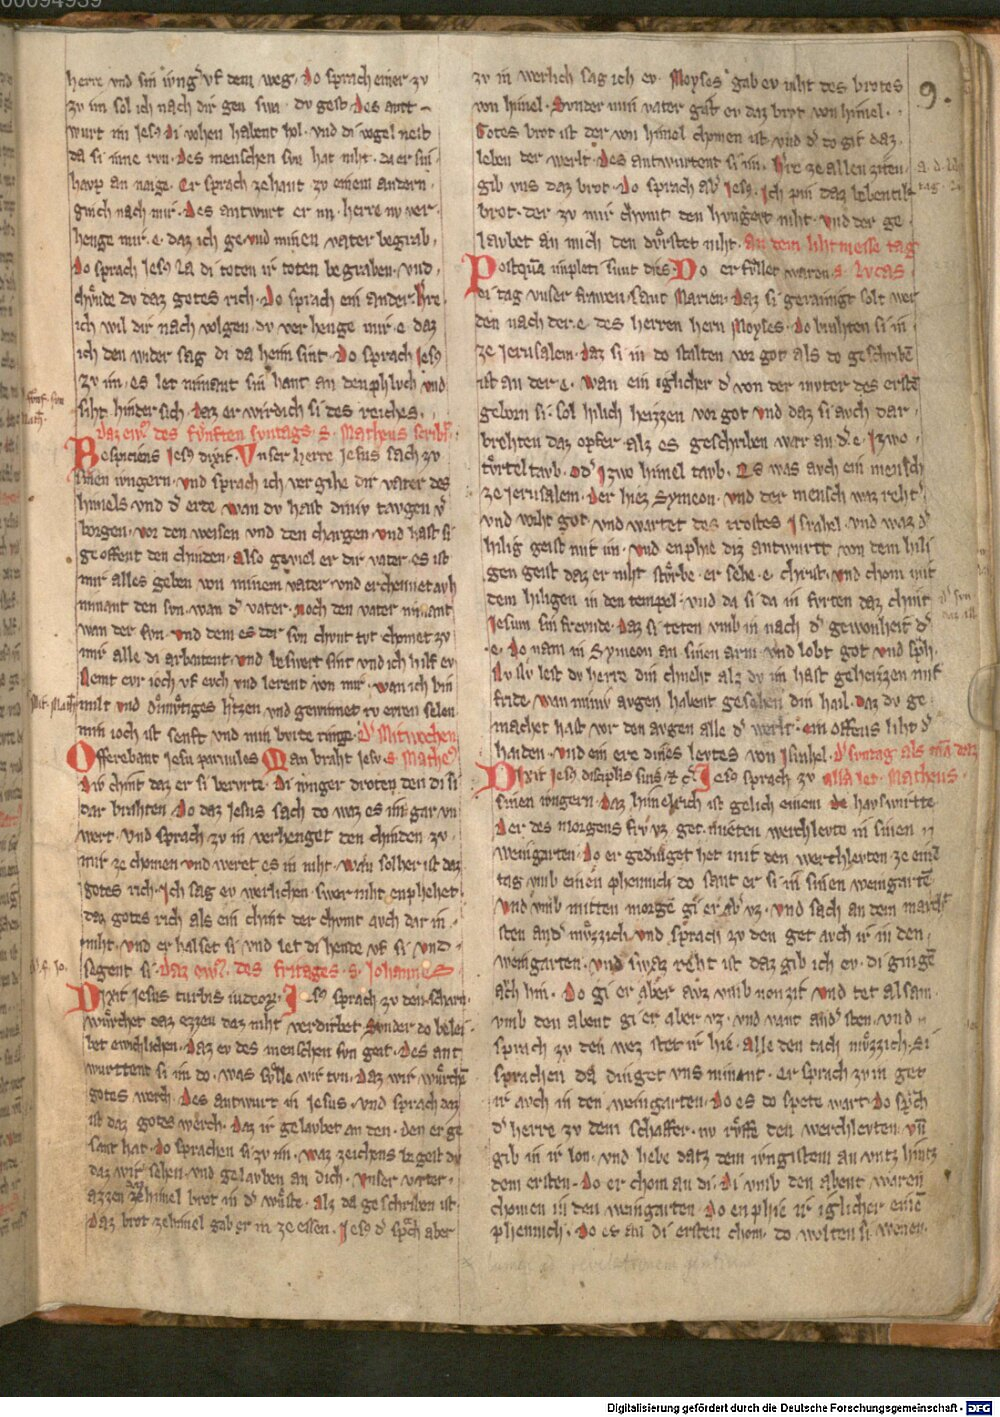 herre vnd sin iunǵ vf dem weg. Do sprach einer zv
zv im sol ich nach dir gen swa dv gest. Des antt
wurt im Jesꝰ di vohen habent hol. vnd di vogel nest
da si inne rvn. Des menschen svn hat niht. da er sin
havp an naige. Er sprach zehant zv einem andern.
ginch nach mir. Des antwurt er im. herre nv ver
henge mir. e. daz ich ge. vnd minen vater begrab.
Do sprach Jesꝰ La di toten ir toten begraben. vnd.
chvnde dv daz gotes rich. Do sprach ein ander. h̓re
ich wil dir nach volgen. dv verhenge mir. e. daz
ich den wider sag di da heim sint. Do sprach Jesꝰ
zv im. es let nimant sin hant an den phluch vnd
siht hinder sich. daz er wirdich si des reiches.
Daz ewꝫ des fvnften svntags. S. Matheus scribt.
Respiciens Jesꝰ dixit. Vnser herre Jesus sach zv
sinen iungern. vnd sprach ich vergihe dir vater des
himels vnd d̓ erde. wan dv hast diniv tavgen v̓
borgen. vor den weisen vnd den chargen. vnd hast si
geoffent den chinden. also geviel er dir vater. es ist
mir alles geben von minem vater. vnd erchennet avh
nimant den svn. wan d̓ vater. noch den vater nimant
wan der svn. vnd dem es der svn chvnt tvt chomet zv
mir alle di arbaitent. vnd beswert sint vnd ich hilf ev
Nemt evr ioch vf evch vnd lernt von mir. wan ich bin
milt vnd di̓mv̓tiges h̓tzen vnd gewinnet rv evren selen
min ioch ist senft vnd min bvrde ringe. D̓ Mitwochen
Offerebant Jesu parvules Man braht Jesv. S. Matheꝰ
Div chint daz er si bervrte. Di iunger droten den di si
dar brahten. Do daz Jesus sach do waz es im gar vn
wert. Vnd sprach zv in verhenget den chinden zv.
mir ze chomen vnd weret es in niht. wan solher ist daz
gotes rich. Ich sag ev werlichen. swer niht enphehet
daz gotes rich als ein chint der chvmt avch dar in.
niht. vnd er halset si vnd let di hende vf si vnd.
segent si. Daz ewꝫ. des fritages. S. Johannes
Dixit Jesus turbis iudeoꝝ. Jesꝰ sprach zv den scharn.
wurchet daz ezzen daz niht verdirbet Svnder do belei
bet ewichlichen. Daz ev des menschen svn geit. Des ant
wurttent si im do. was svlle wir tvn. Daz wir wurchen
gotes werch. Des antwurt in Jesus. vnd sprach daz
ist daz gotes werch. Daz ir gelavbet an den. den er ge
sant hat. do sprachen si zv im. waz zeichens geist dv
daz wir sehen. vnd gelavben an dich. Vnser væter.
azzen daz himel brot in d̓ wv̓ste. Als da geschriben ist.
Daz brot ze himel gab er in ze essen. Jesꝰ d̓ sprach aber
9.
zv in werlich sag ich ev. Moyses gab ev niht des brotes
von himel. Svnder min vater gabt ev daz brot von himel.
Gotes brot ist der von himel chomen ist vnd d̓ do git daz
leben der werlt. Des antwurtent si im. H̓re ze allen ziten.
gib vns daz brot. Do sprach ab̓ Jesꝰ. Ich pin daz lebentich
brot. der zv mir chvmt den hvngert niht. vnd der ge
lavbet an mich den dv̓rstet niht. An dem lihtmesse tag
Postquā inpleti sunt dies Do erfvllet waren S. Lvcas.
di tag vnser frawen. sant Marien. daz si gerainigt solt wer
den nach der. e. des herren hern Moyses. do brahten si in
ze Jerusalem. daz si in do stalten vor got als do geschribē
ist an der. e. wan ein iglicher d̓ von der mvter des erstē
geborn si. sol hilich heizzen vor got vnd daz si avch dar.
brehten daz opfer. alz es geschriben war an d̓. e. Jzwo.
tv̓rteltavb. od̓ Jzwo himel tavb. Es was avch ein mensch
ze Jerusalem. der hiez Symeon. vnd der mensch waz reht
vnd vorht got vnd wartet des trostes Israhel. vnd waz d̓
hilig geist mit im. vnd enphie diz antwurtt von dem hili
gen geist daz er niht stv̓rbe. er sehe. e. christ. vnd chom mit
dem hiligen in den tempel. vnd da si da in fvrten daz chint
Jesum sin frevnde. daz si teten vmb in nach d̓ gewonheit d̓
.e. Do nam in Symeon an sinen arm vnd lobt got vnd sp̄h.
Nv Nv lest dv herre din chneht alz dv im hast geheizzen mit
fride. wan miniv avgen habent gesehen din hail. Daz dv ge
machet hast vor den avgen alle d̓ werlt. ein offens liht d̓
haiden. vnd ein ere dines levtes von Israhel. D̓ svntag als
Dixit Jesꝰ discipulis suis. Jesꝰ sprach zv Matheus.
sinen iungern. Daz himelrich ist gelich einem havswirtte
Der des morgens frv vz. get. mieten werchlevte in sinen
weingarten. Do er gedinget het mit den werchlevten ze einē
tag vmb einen phennich do sant er si in sinen weingartē
vnd vmb mitten morgē gi er ab̓ vz. vnd sach an dem march
sten and̓ mv̓zzich. vnd sprach zv den get avch ir in den.
weingarten. vnd swaz reht ist daz gib ich ev. di gingē
ach hin. Do gi er aber avz vmb non zit vnd tet alsam.
vmb den abent gi er aber vz. vnd vant and̓ sten. vnd
sprach zv den wez stet ir hie. alle den tach mv̓zzich. Si
sprachen da dinget vns nimant. Er sprach zv in get
ir avch in den weingarten. Do es do spete wart. do sp̄ch
d̓ herre zv dem schaffer. nv rv̓ffe den werchlevten. vn̄
gib in ir lon. vnd hebe datz dem iungistem an vntz hintz
dem ersten. Do er chom an di. di vmb den abent waren
chomen in den weingarten. Do enphie ir iglicher einē
phennich. Do es an di ersten chom. do wolten si wenen.
Digitalisierung gefördert durch die Deutsche Forschungsgemeinschaft - DFG